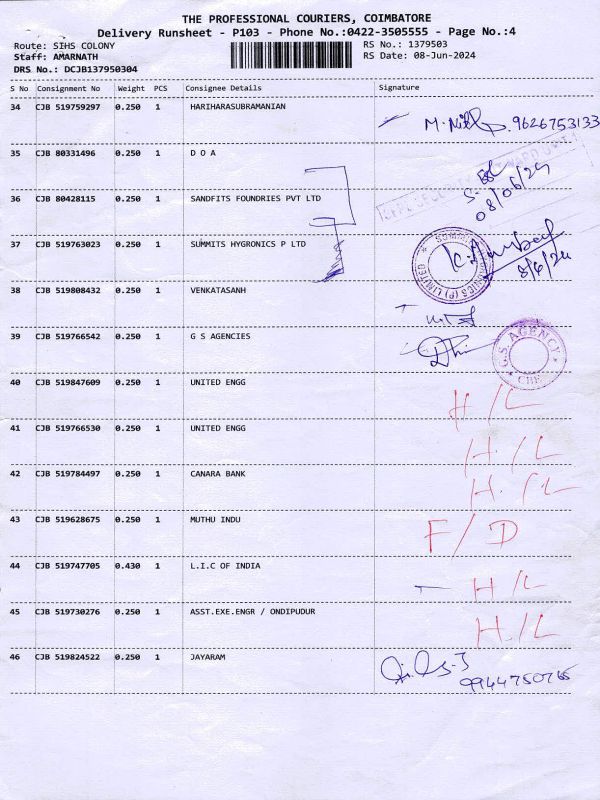 THE PROFESSIONAL COURIERS, COIMBATORE
Delivery Runsheet - P103 - Phone No.:0422-3505555 - Page No.:4
Route: SIHS COLONY RS No.: 1379503
Staff: AMARNATH RS Date: 08-Jun-2024
DRS No.: DCJB137950304
S No Consignment No Weight PCS Consignee Details Signature
34 CJB 519759297 0.250 1 HARIHARASUBRAMANIAN
9626753133
35 CJB 80331496 0.250 1 D O A
08/06/24
36 CJB 80428115 0.250 1 SANDFITS FOUNDRIES PVT LTD
37 CJB 519763023 0.250 1 SUMMITS HYGRONICS P LTD
8/6/24
38 CJB 519808432 0.250 1 VENKATASANH
39 CJB 519766542 0.250 1 G S AGENCIES
G.S. AGENCY
CBE
40 CJB 519847609 0.250 1 UNITED ENGG H/L
41 CJB 519766530 0.250 1 UNITED ENGG H/L
42 CJB 519784497 0.250 1 CANARA BANK H/L
43 CJB 519628675 0.250 1 MUTHU INDU F/D
44 CJB 519747705 0.430 1 L.I.C OF INDIA H/L
45 CJB 519730276 0.250 1 ASST.EXE.ENGR / ONDIPUDUR H/L
46 CJB 519824522 0.250 1 JAYARAM